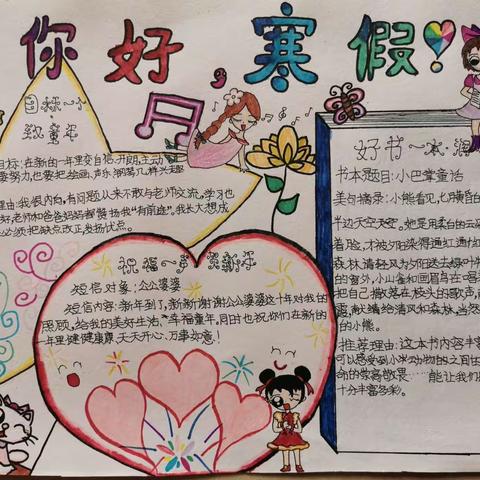 你好,寒假!
目标一个
致童年
目标:在新的一年里变自信、开朗、主动
要努力,也要把绘画、声乐、钢琴几样兴趣
理由:我很内向,有问题从来不敢与老师交流。学习也
好,老师和爸爸妈妈都赞扬我“有前途”。我长大想成
必须把缺点改正,发扬优点。
祝福一声贺新年
短信对象:公公婆婆
短信内容:新年到了,新新谢谢公公婆婆这十年对我的
照顾,给我的美好生活、幸福童年。同时也祝你们在新的
一年里健健康康、天天开心、万事如意!
好书一本
书本题目:小巴掌童话
美句摘录:小熊看见,七月黄昏的
半边天空天空。她是用柔白的云
着脸,才被夕阳染得通红通
森林,请轻风为夕阳送去绿叶
的窗外,小山雀和画眉鸟在
把自己撒落在枝头的歌声,
南天晴给清风和森林。当然
的小熊。
推荐理由:这本书内容丰
可以感受到小动物们之间
命的崇高敬畏……能让我们
十分丰富多彩。